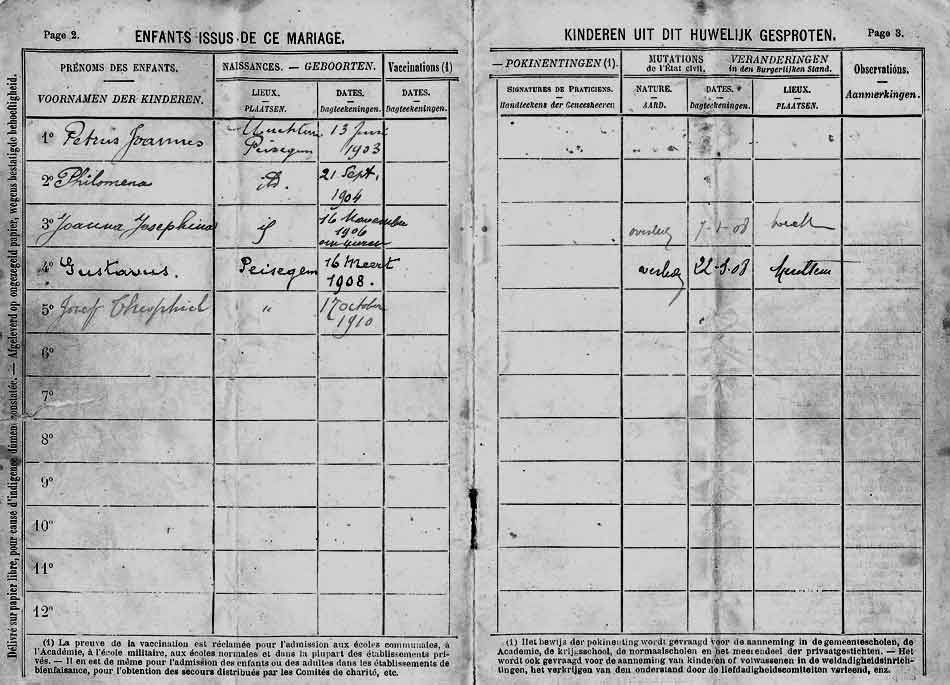 Page 2.
ENFANTS ISSUS DE CE MARIAGE.
PRÉNOMS DES ENFANTS.
VOORNAMEN DER KINDEREN.
NAISSANCES. — GEBOORTEN.
Vaccinations (1)
LIEUX.
PLAATSEN.
DATES.
Dagteekeningen.
DATES.
Dagteekeningen.
1º Petrus Joannes
Peisegem
13 Juni
1903
2º Philomena
id.
21 Sept.
1904
3º Joanna Josephina
16 November
1906
4º Gustavus.
Peisegem
16 Meert
1908.
5º Josef Theophiel
"
17 October
1910
6º
7º
8º
9º
10º
11º
12º
Délivré sur papier libre, pour cause d'indigence dûment constatée. — Afgeleverd op ongezegeld papier, wegens bestatigde behoeftigheid.
(1) La preuve de la vaccination est réclamée pour l'admission aux écoles communales, à
l'Académie, à l'école militaire, aux écoles normales et dans la plupart des établissements pri-
vés. — Il en est de même pour l'admission des enfants ou des adultes dans les établissements de
bienfaisance, pour l'obtention des secours distribués par les Comités de charité, etc.
KINDEREN UIT DIT HUWELIJK GESPROTEN.
Page 3.
— POKINENTINGEN (1).
MUTATIONS
de l'État civil.
VERANDERINGEN
in den Burgerlijken Stand.
Observations.
Aanmerkingen.
SIGNATURES DE PRATICIENS.
Handteekens der Geneesheeren
NATURE.
AARD.
DATES.
Dagteekeningen.
LIEUX.
PLAATSEN.
overleg 7-1-08
overleg 22-9-08
(1) Het bewijs der pokinenting wordt gevraagd voor de aanneming in de gemeentescholen, de
Academie, de krijgsschool, de normaalscholen en het meerendeel der privaatgestichten. — Het
wordt ook gevraagd voor de aanneming van kinderen of volwassenen in de weldadigheidsinrich-
tingen, het verkrijgen van den onderstand door de liefdadigheidscomiteiten verleend, enz.